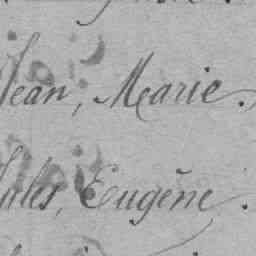 Jean, Marie.
Jules, Eugène.